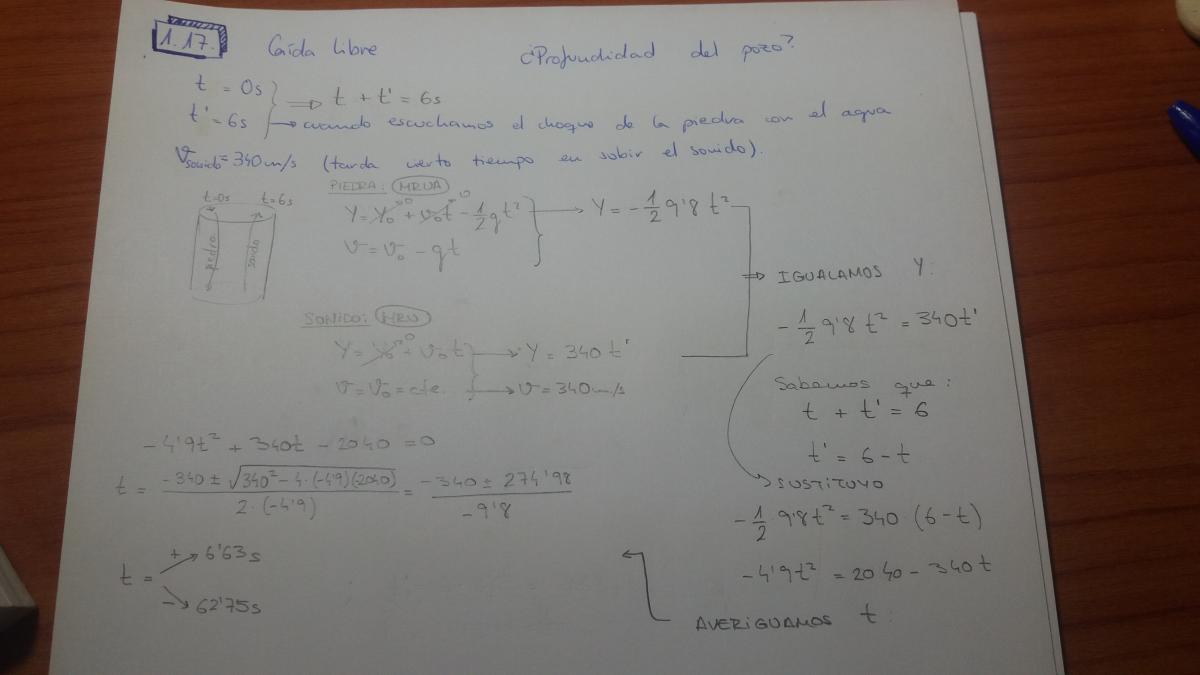 1.17. Caída libre ¿Profundidad del pozo?
t = 0s
t' = 6s
⇒ t + t' = 6s
→ cuando escuchamos el choque de la piedra con el agua
Vsonido = 340 m/s (tarda cierto tiempo en subir el sonido).
t=0s t=6s
piedra
sonido
PIEDRA: MRUA
Y = Y₀ + v₀t - 1/2 g t² → Y = - 1/2 9'8 t²
v = v₀ - gt
SONIDO: MRU
Y = Y₀ + v₀ t → Y = 340 t'
v = v₀ = cte. → v = 340 m/s
⇒ IGUALAMOS Y:
- 1/2 9'8 t² = 340 t'
Sabemos que:
t + t' = 6
t' = 6 - t
SUSTITUYO
- 1/2 9'8 t² = 340 · (6 - t)
-4'9t² = 2040 - 340t
AVERIGUAMOS t:
-4'9t² + 340t - 2040 = 0
t = (-340 ± √(340² - 4·(-4'9)(2040))) / (2·(-4'9)) = (-340 ± 274'98) / -9'8
t =
+ → 6'63s
- → 62'75s